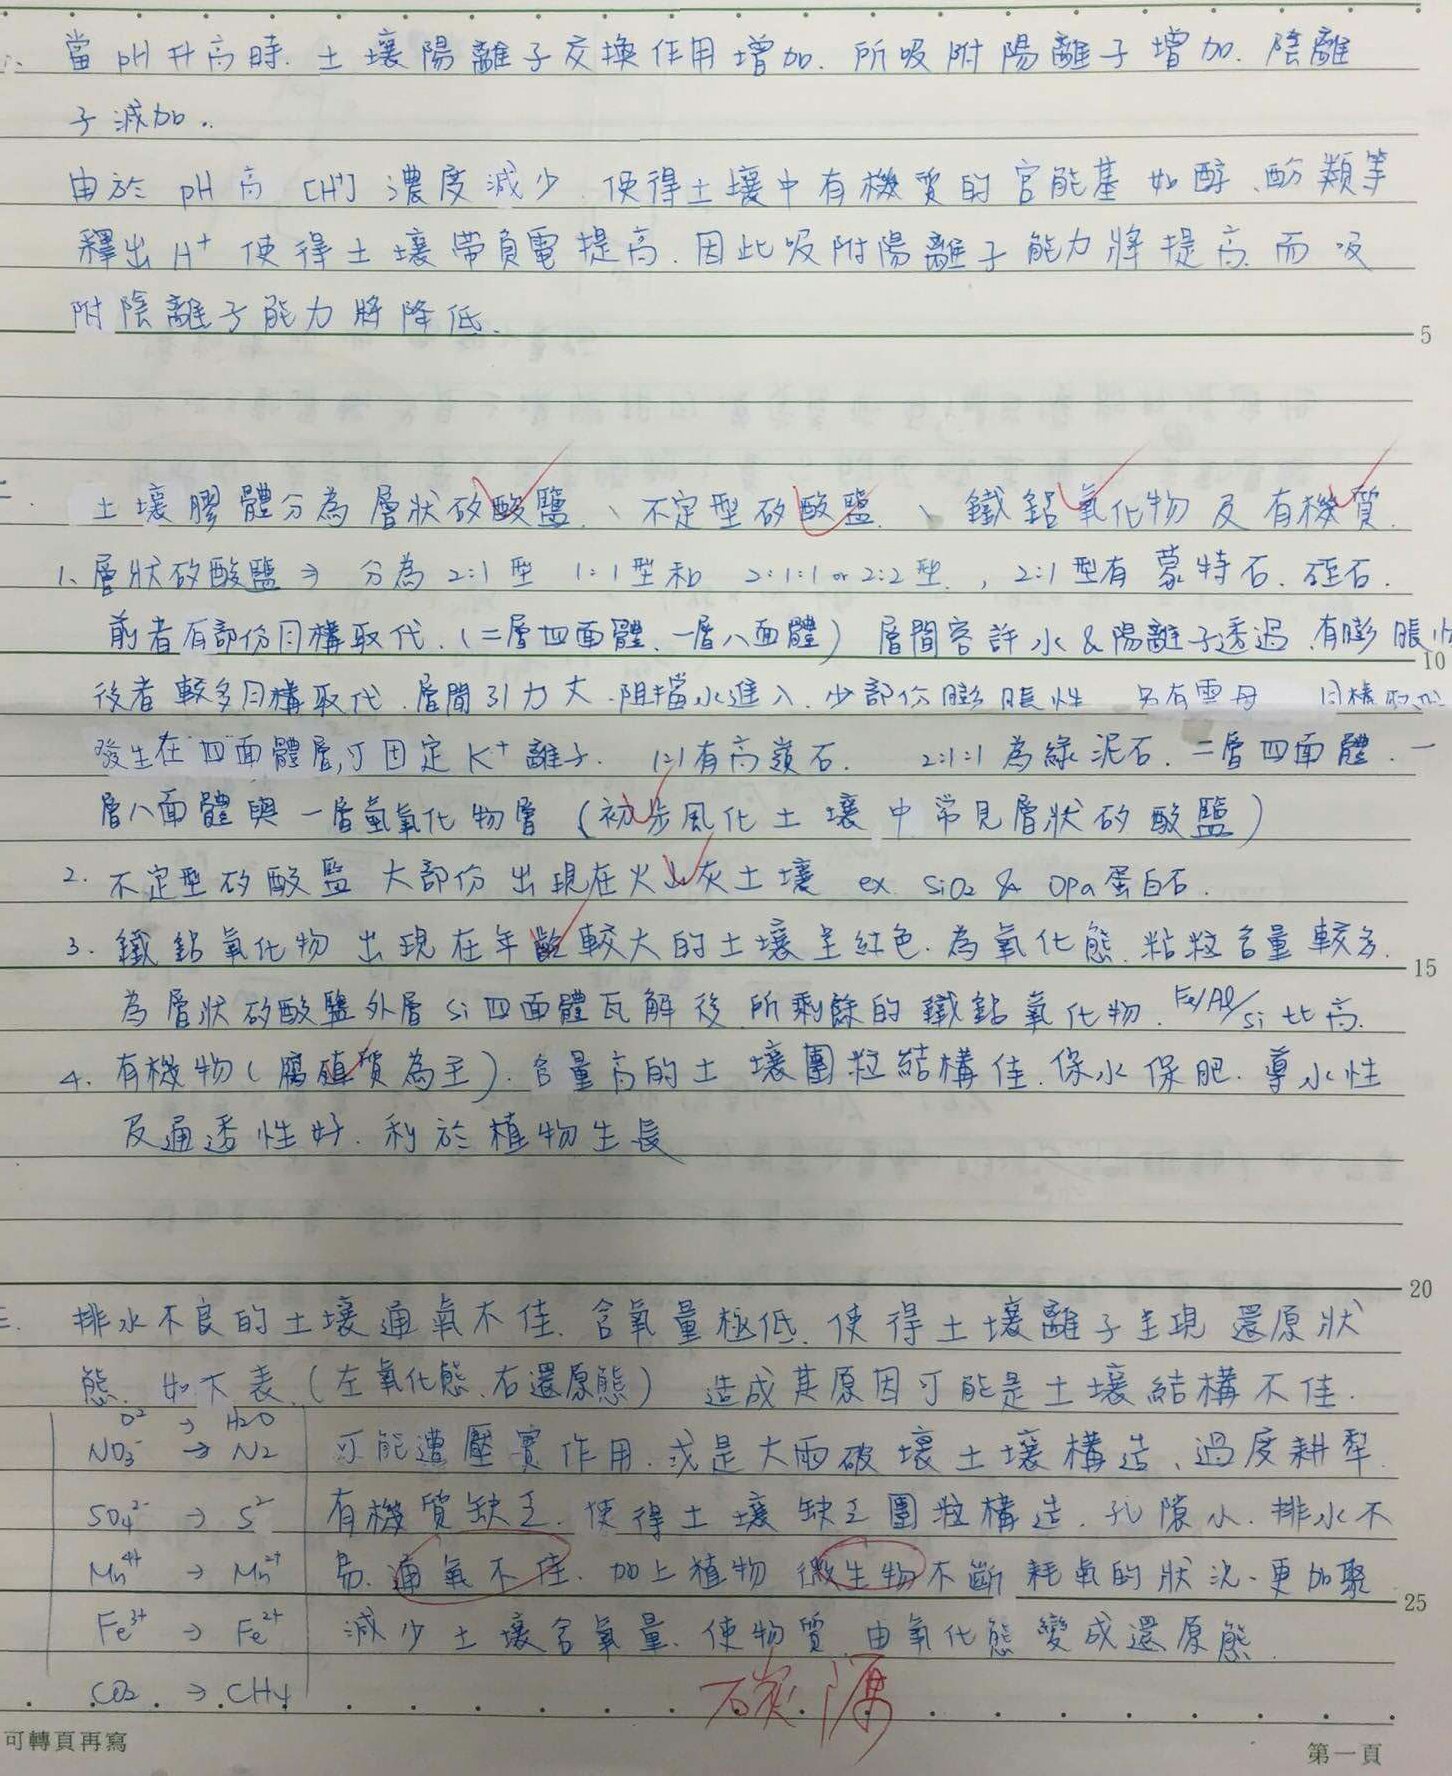 當 pH 升高時. 土壤陽離子交換作用增加. 所吸附陽離子增加. 陰離
子減加..
由於 pH 高 [H⁺] 濃度減少 使得土壤中有機質的官能基 如醇、酚類等
釋出 H⁺ 使得土壤帶負電提高. 因此吸附陽離子能力將提高. 而吸
附陰離子能力將降低.
5
二. 土壤膠體分為層狀矽酸鹽、不定型矽酸鹽、鐵鋁氧化物及有機質.
1. 層狀矽酸鹽 ⇒ 分為 2:1 型 1:1 型和 2:1:1 or 2:2 型., 2:1 型有蒙特石、蛭石.
前者有部份同構取代. (二層四面體、一層八面體) 層間容許水 & 陽離子透過. 有膨脹
10
後者較多同構取代. 層間引力大. 阻擋水進入. 少部份膨脹性 另有雲母 同構取代
發生在四面體層,可固定 K⁺ 離子. 1:1 有高嶺石. 2:1:1 為綠泥石. 二層四面體. 一
層八面體與一層氫氧化物層 (初步風化土壤中常見層狀矽酸鹽)
2. 不定型矽酸鹽 大部份出現在火山灰土壤 ex SiO₂ & Opa 蛋白石.
3. 鐵鋁氧化物 出現在年齡較大的土壤呈紅色. 為氧化態. 粘粒含量較多.
15
為層狀矽酸鹽外層 Si 四面體瓦解後 所剩餘的鐵鋁氧化物. Fe/Al/Si 比高.
4. 有機物 (腐植質為主). 含量高的土壤團粒結構佳. 保水保肥. 導水性
及通透性好. 利於植物生長
20
三. 排水不良的土壤通氣不佳. 含氧量極低. 使得土壤離子呈現還原狀
態. 如下表. (左氧化態、右還原態) 造成其原因可能是土壤結構不佳.
O²⁻ → H₂O
NO₃⁻ → N₂ 可能遭壓實作用. 或是大雨破壞土壤構造、過度耕犁.
SO₄²⁻ → S²⁻ 有機質缺乏. 使得土壤缺乏團粒構造. 孔隙小. 排水不
Mn⁴⁺ → Mn²⁺ 易. 通氣不佳. 加上植物 微生物不斷耗氧的狀況. 更加聚
25
Fe³⁺ → Fe²⁺ 減少土壤含氧量. 使物質由氧化態變成還原態.
CO₂ → CH₄
可轉頁再寫
第一頁